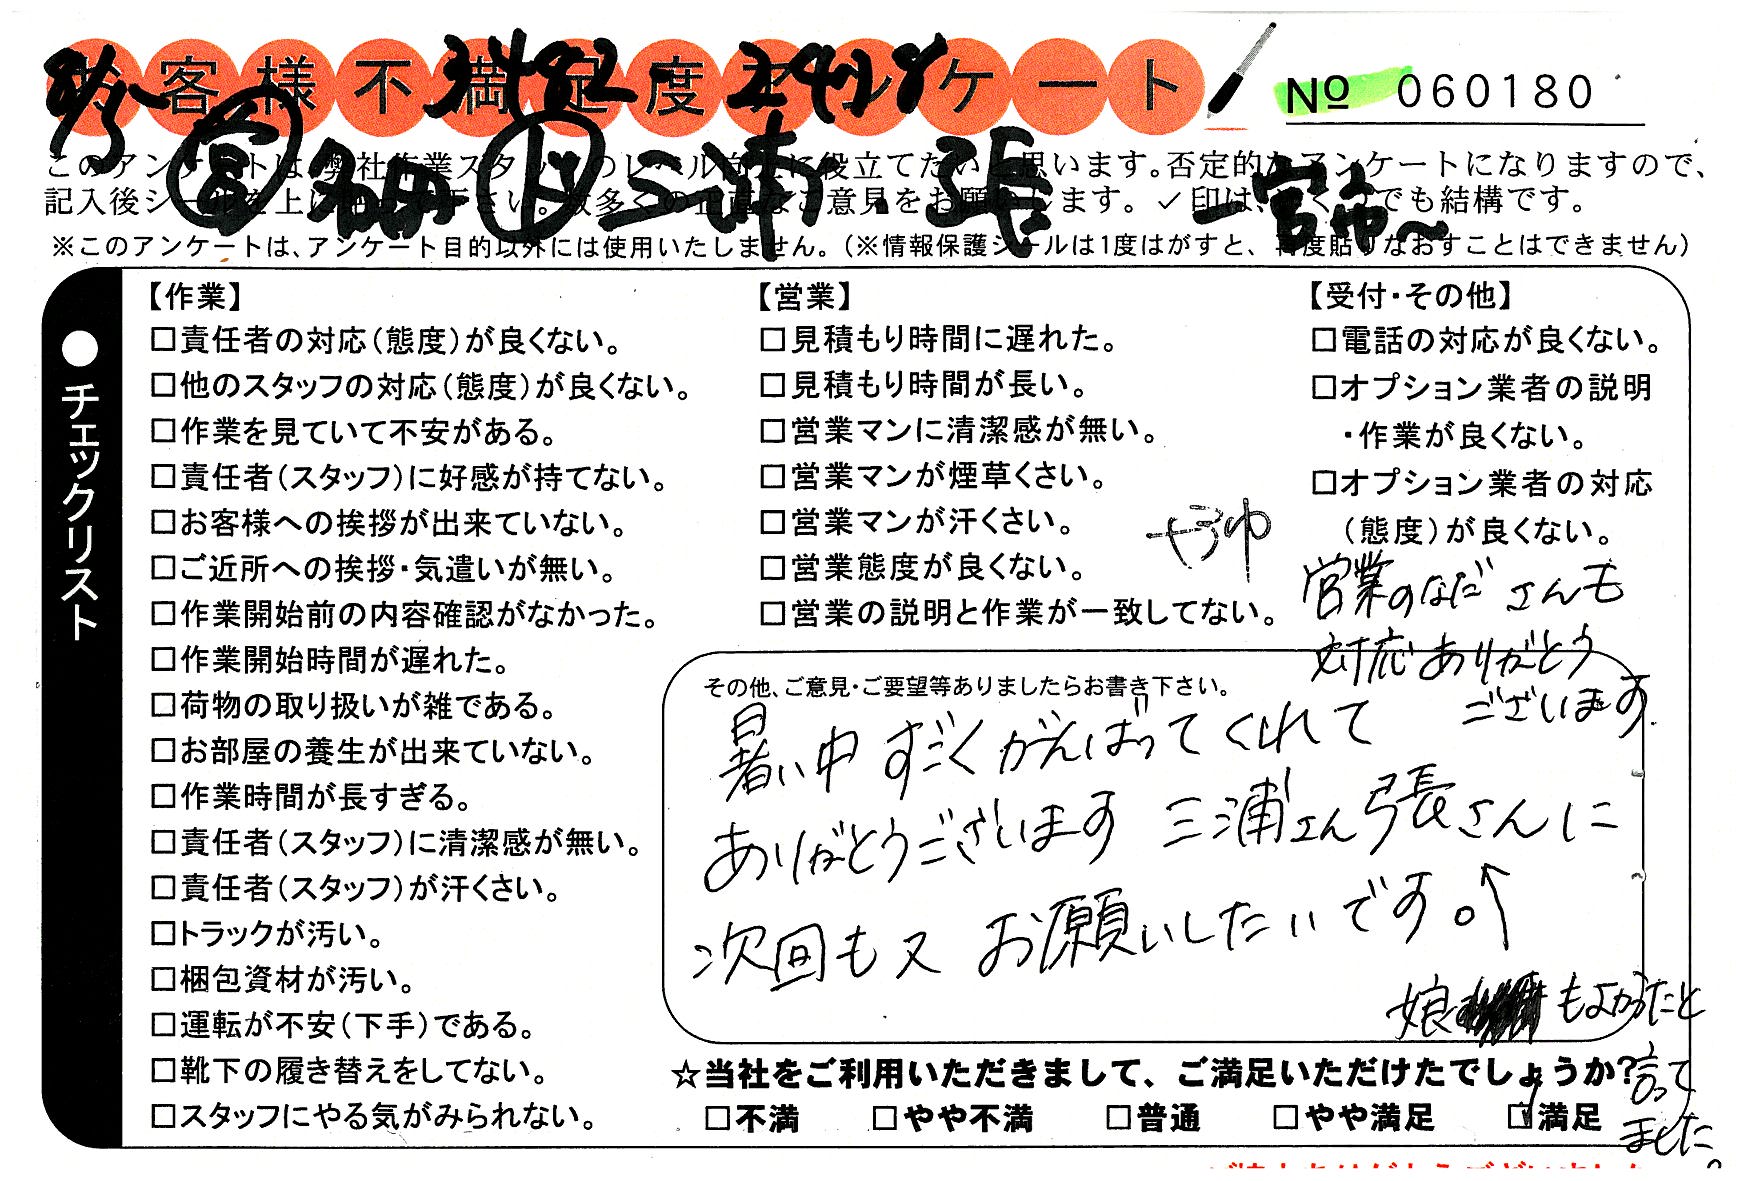 お客様不満足度アンケート
8/5 3482-2428
㊂ 畑 ト 三浦 張 一宮市~
№ 060180
このアンケートは、弊社作業スタッフのレベル向上に役立てたいと思います。否定的なアンケートになりますので、
記入後シールを上に貼って下さい。数多くの正直なご意見をお願いします。✓印は、いくつでも結構です。
※このアンケートは、アンケート目的以外には使用いたしません。(※情報保護シールは1度はがすと、再度貼りなおすことはできません)
●チェックリスト
【作業】
□責任者の対応(態度)が良くない。
□他のスタッフの対応(態度)が良くない。
□作業を見ていて不安がある。
□責任者(スタッフ)に好感が持てない。
□お客様への挨拶が出来ていない。
□ご近所への挨拶・気遣いが無い。
□作業開始前の内容確認がなかった。
□作業開始時間が遅れた。
□荷物の取り扱いが雑である。
□お部屋の養生が出来ていない。
□作業時間が長すぎる。
□責任者(スタッフ)に清潔感が無い。
□責任者(スタッフ)が汗くさい。
□トラックが汚い。
□梱包資材が汚い。
□運転が不安(下手)である。
□靴下の履き替えをしてない。
□スタッフにやる気がみられない。
【営業】
□見積もり時間に遅れた。
□見積もり時間が長い。
□営業マンに清潔感が無い。
□営業マンが煙草くさい。
□営業マンが汗くさい。
□営業態度が良くない。
□営業の説明と作業が一致してない。
【受付・その他】
□電話の対応が良くない。
□オプション業者の説明
・作業が良くない。
□オプション業者の対応
(態度)が良くない。
営業のなださんも
対応ありがとう
ございます
その他、ご意見・ご要望等ありましたらお書き下さい。
暑い中すごくがんばってくれて
ありがとうございます 三浦さん張さんに
次回も又お願いしたいです。↑
娘もよかったと
言って
ました。
☆当社をご利用いただきまして、ご満足いただけたでしょうか?
□不満 □やや不満 □普通 □やや満足 ☑満足